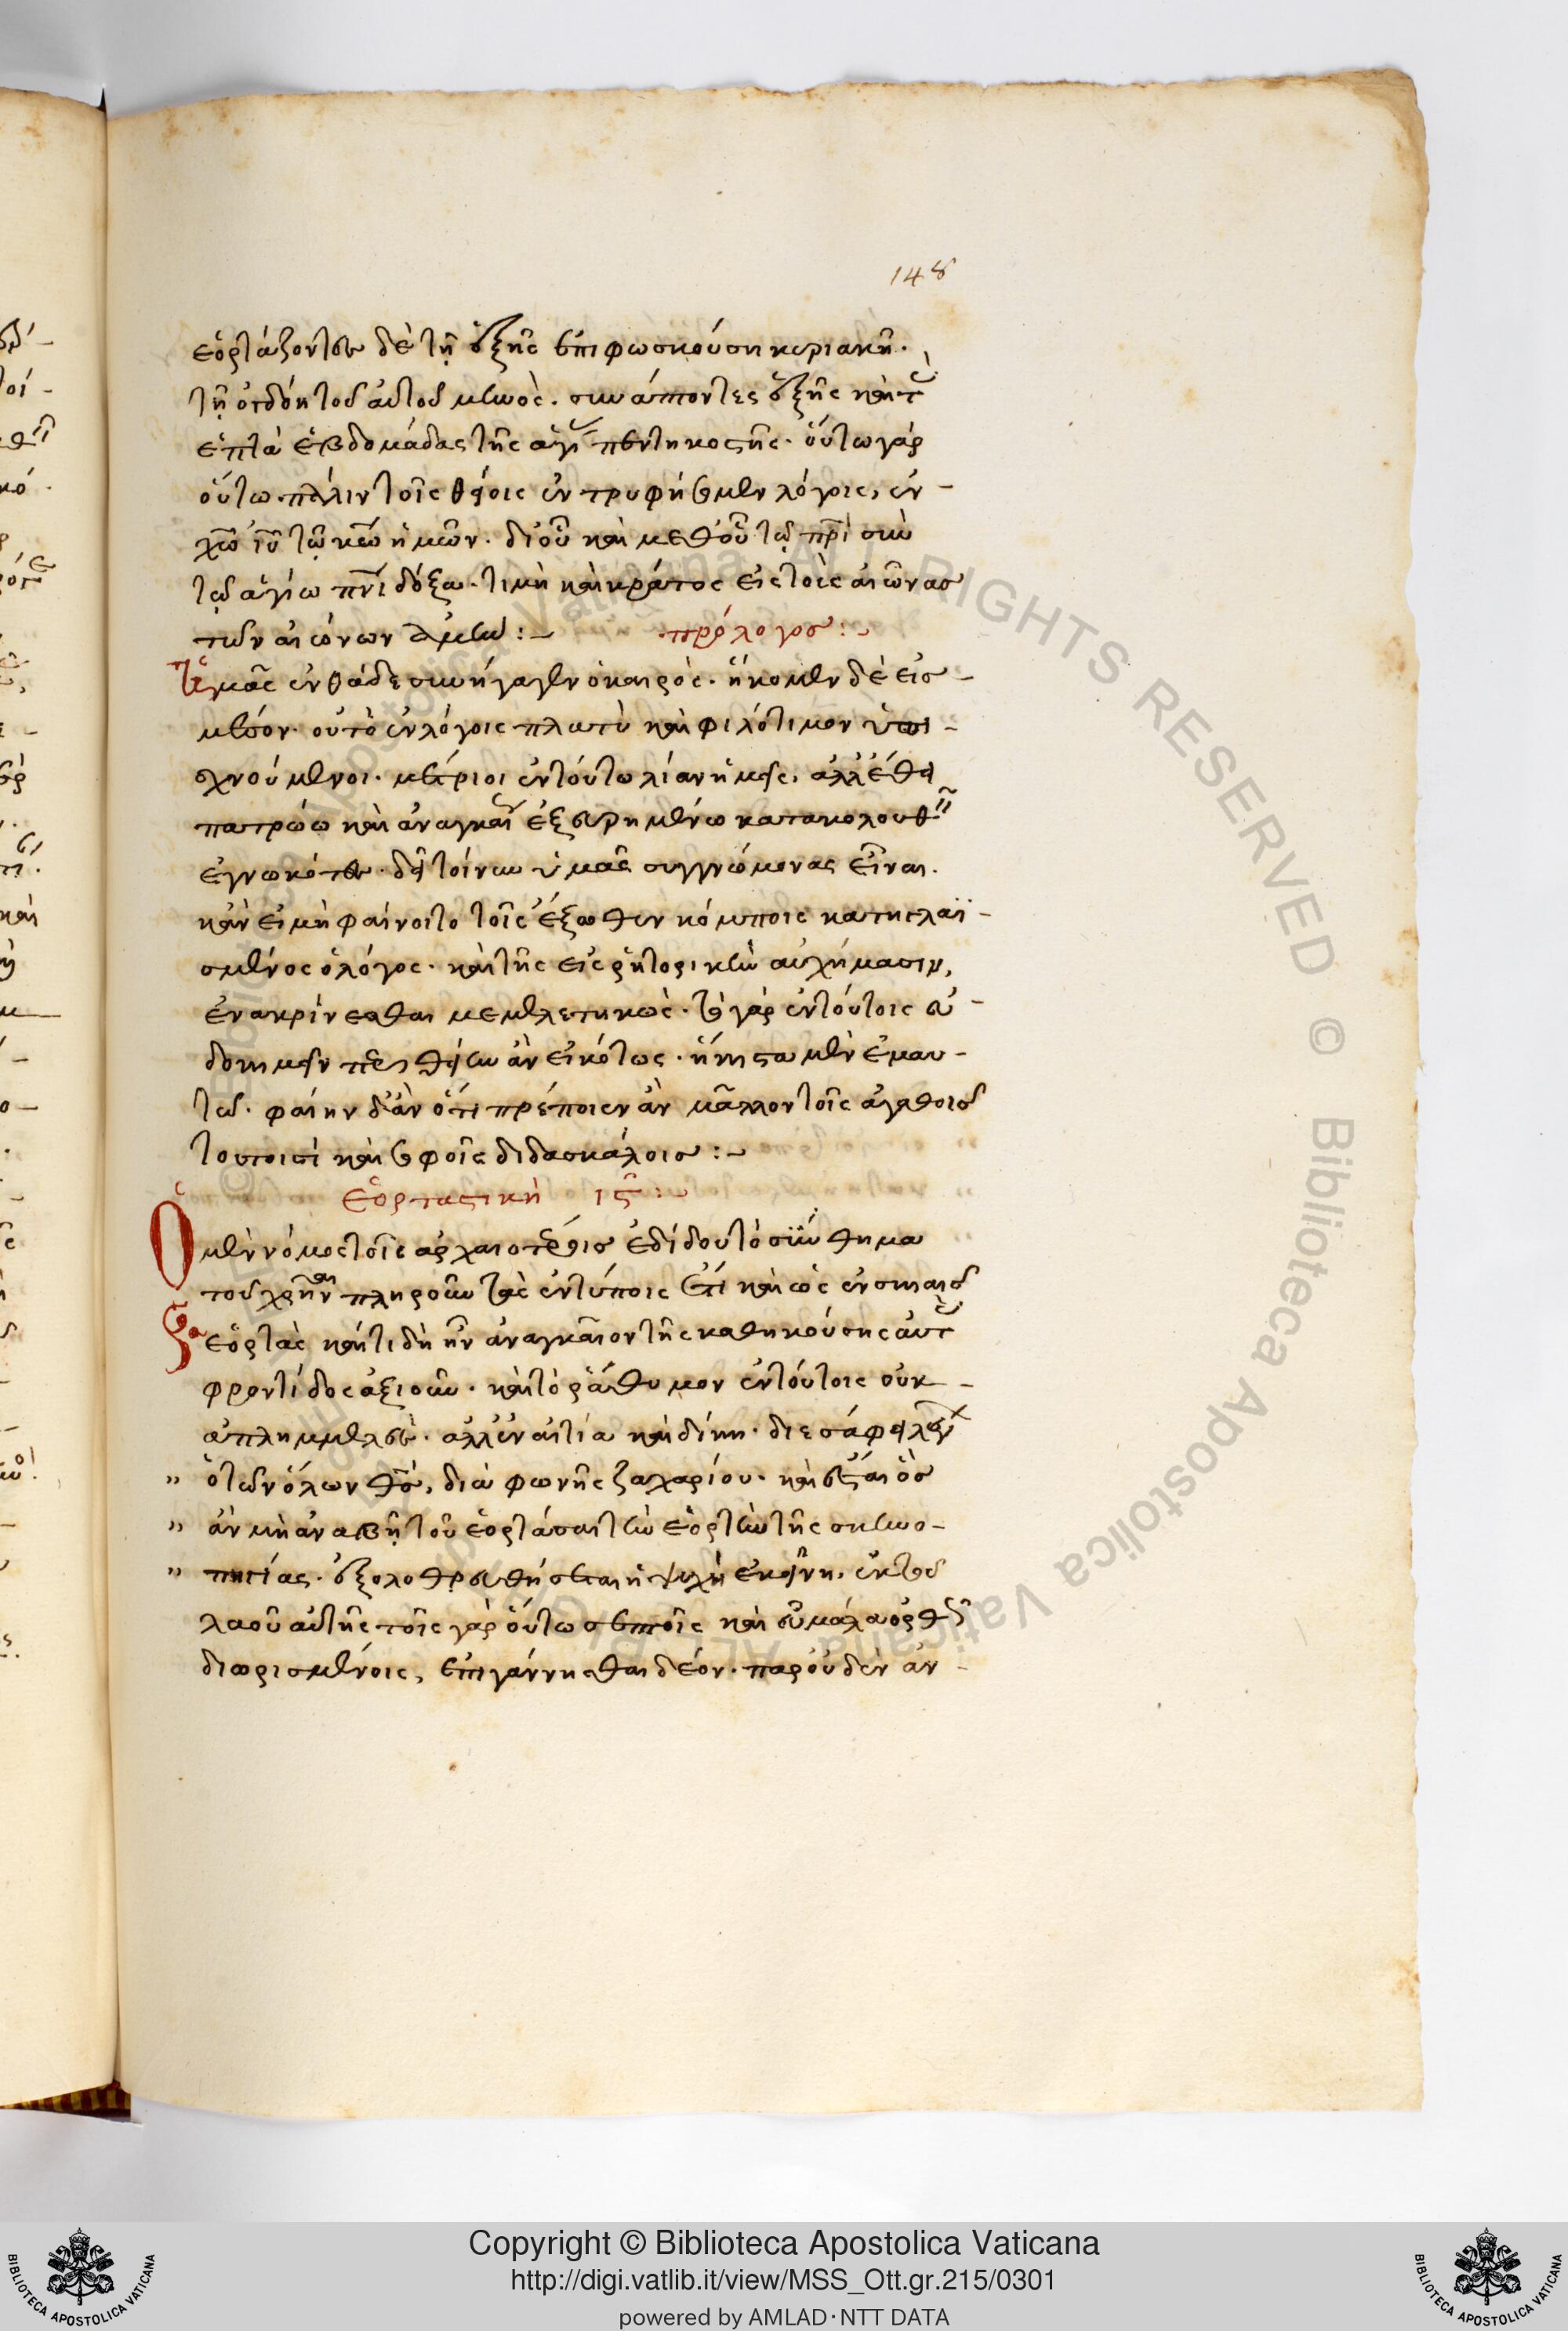 148
ἑορτάζοντες δὲ τῇ ἑξῆς ἐπιφωσκούσῃ κυριακῇ.
τῇ ὀγδόῃ τοῦ αὐτοῦ μηνὸς. συνάπτοντες ἑξῆς καὶ τὰς
ἑπτὰ ἑβδομάδας τῆς ἁγίας πεντηκοστῆς. οὕτω γὰρ
οὕτω πάλιν τοῖς θείοις ἐντρυφήσομεν λόγοις, ἐν -
χῶ ἰῦ τῷ κῶ ἡμῶν. δι οὗ καὶ μεθ οὗ τῷ πρὶ σὺν
τῷ ἁγίω πνὶ δόξα. τιμὴ καὶ κράτος εἰς τοὺς αἰῶνας
τῶν αἰώνων ἀμήν :-
πρόλογος :-
Ἡμᾶς ἐνθάδε συνήγαγεν ὁ καιρὸς. ἥκομεν δὲ εἰς -
μέσον. οὔ τὸ ἐν λόγοις πλατὺ καὶ φιλότιμον ὑπι -
σχνούμενοι. μέτριοι ἐν τούτω λίαν ἡμεῖς, ἀλλ ἔθει
πατρώω καὶ ἀναγκαίως ἐξευρημένω κατακολουθεῖν
ἐγνωκότες. δεῖ τοίνυν ὑμᾶς συγγνώμονας εἶναι.
κἂν εἰ μὴ φαίνοιτο τοῖς ἔξωθεν κόμποις κατηγλαϊ -
σμένος ὁ λόγος. καὶ τῆς εἰς ῥητορικὴν αὐχήμασιν,
ἐνακρίνεσθαι μεμελετηκὼς. τὸ γὰρ ἐν τούτοις εὐ -
δοκιμεῖν περιθείην ἂν εἰκότως. ἥκιστα μὲν ἐμαυ -
τῶ. φαίην δ ἂν ὅτι πρέποιεν ἂν μᾶλλον τοῖς ἀγαθοῖς
τουτοισὶ καὶ σοφοῖς διδασκάλοις :-
Ἑορταστικὴ ιϛ :-
Ὁ μὲν νόμος τοῖς ἀρχαιοτέροις ἐδίδου τὸ σύνθημα
τοῦ χρῆναι πληροῦν τὰς ἐν τύποις ἔτι καὶ ὡς ἐν σκιαῖς
ἑορτὰς καί τι δὴ ἦν ἀναγκαῖον τῆς καθηκούσης αὐτοὺς
φροντίδος ἀξιοῦν. καὶ τὸ ῥάθυμον ἐν τούτοις οὐκ -
ἀπλημμελὲς. ἀλλ ἐν αἰτία καὶ δίκη. διεσάφει λέγων
" ὁ τῶν ὅλων θς, διὰ φωνῆς ζαχαρίου. καὶ ἔσται ὃς
" ἂν μὴ ἀναβῇ τοῦ ἑορτάσαι τὴν ἑορτὴν τῆς σκηνο -
" πηγίας. ἐξολοθρευθήσεται ἡ ψυχὴ ἐκείνη, ἐκ τοῦ
λαοῦ αὐτῆς τοῖς γὰρ οὕτω σεπτοῖς καὶ εὖ μάλα ὀρθῶς
διωρισμένοις, ἐπιγάννυσθαι δέον. παρ οὐδὲν ἀν -
Copyright © Biblioteca Apostolica Vaticana
http://digi.vatlib.it/view/MSS_Ott.gr.215/0301
powered by AMLAD·NTT DATA